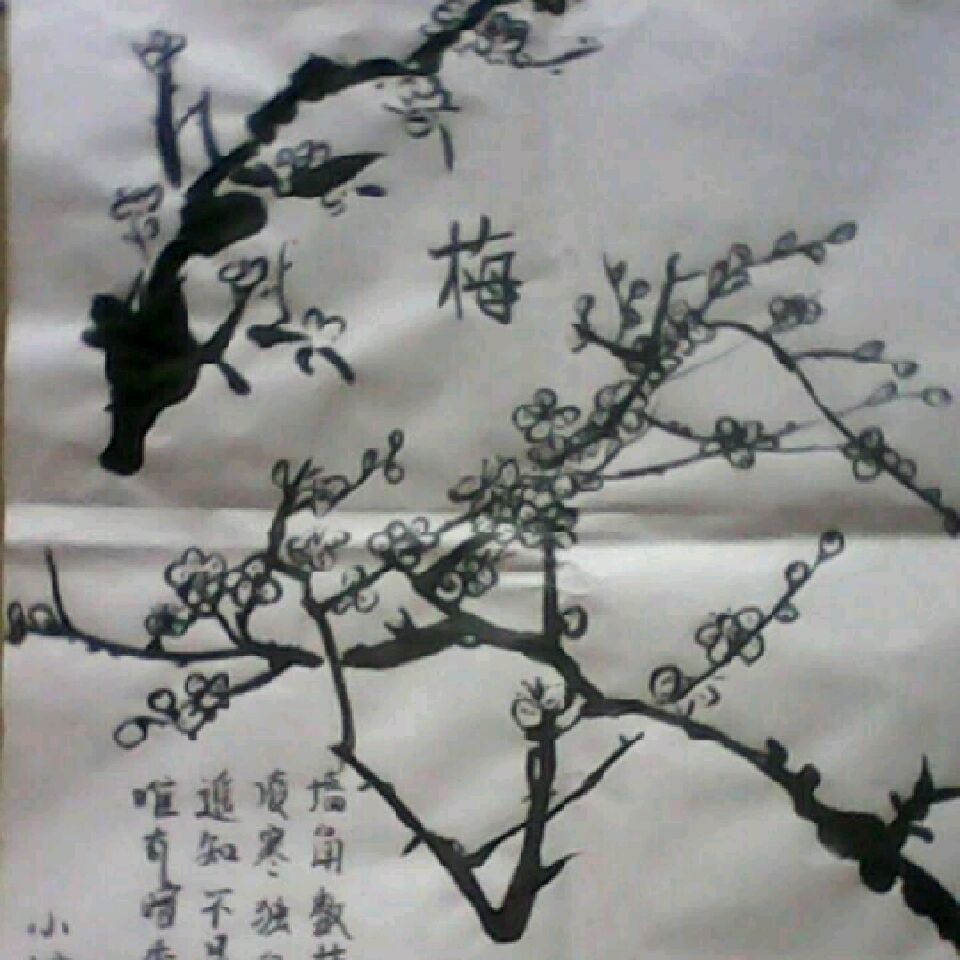 梅
墙角数枝
寒独自
遥知不是
唯有暗香
小